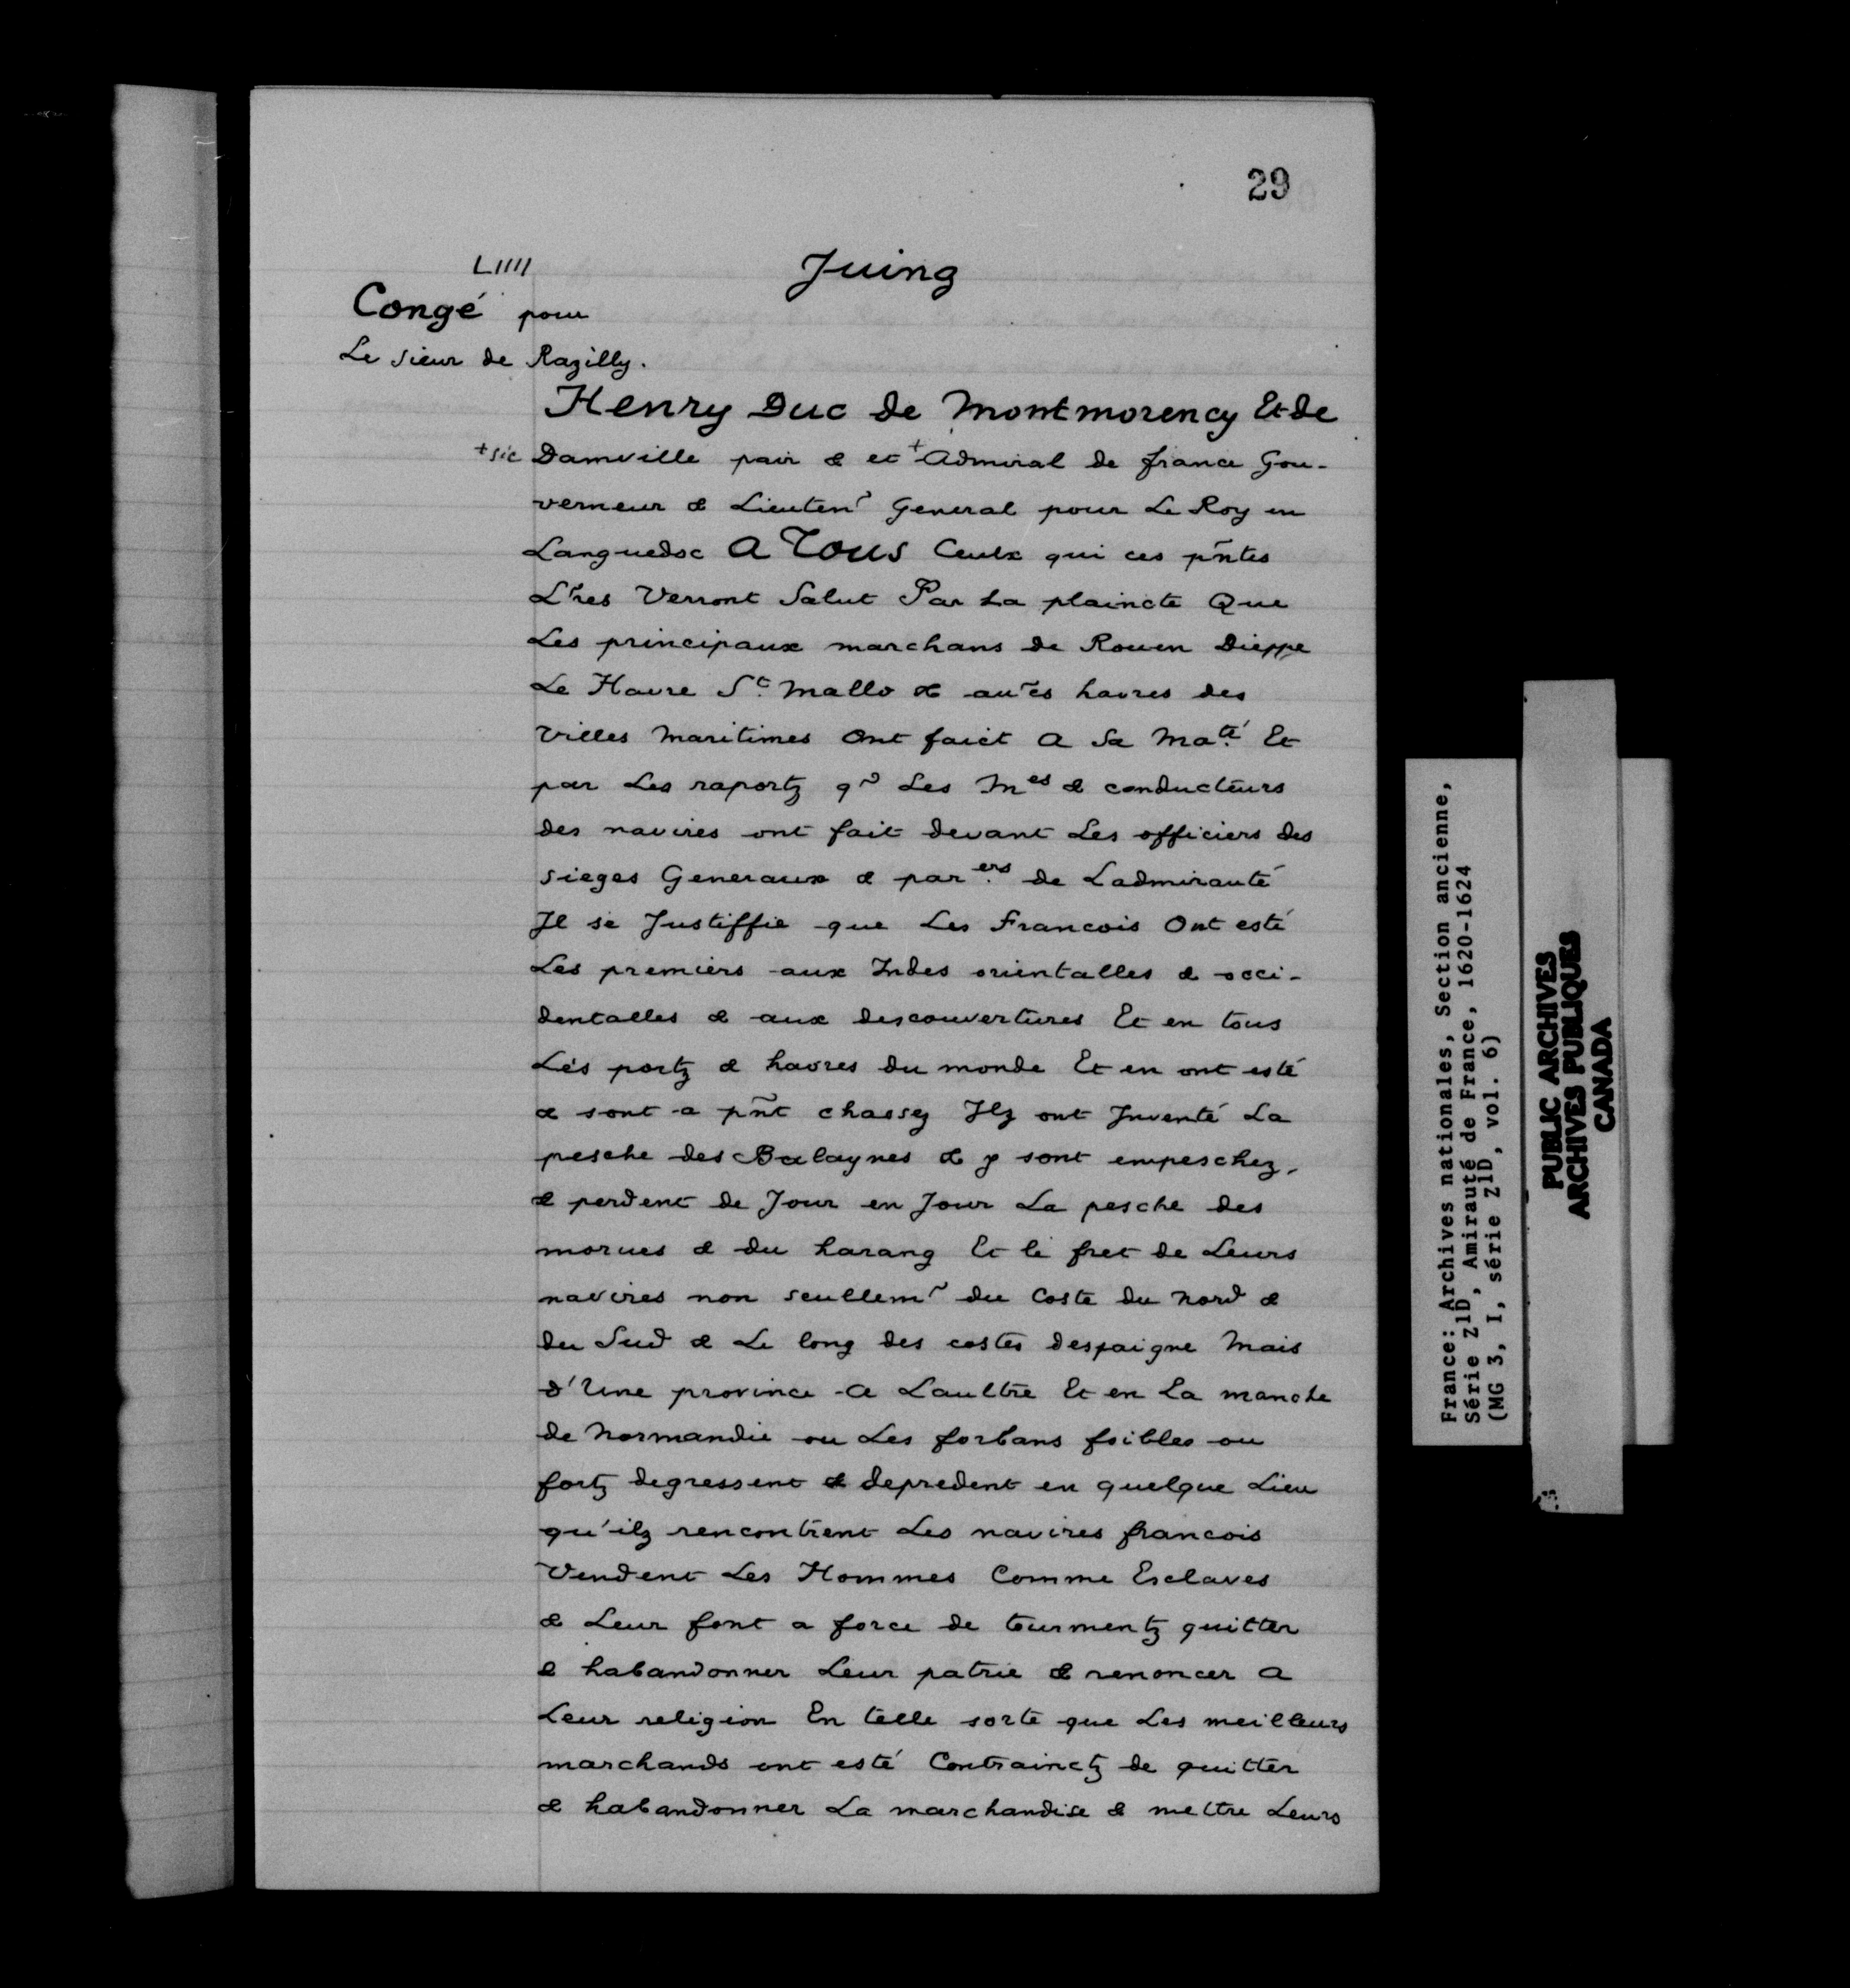 29
LIIII
Juing
Congé pour
Le sieur de Razilly.
Henry Duc de Montmorency Et de
+sic Damville pair & et + Admiral de france Gou-
verneur & Lieuten~ General pour Le Roy en
Languedoc A Tous Ceulx qui ces pñtes
L~res Verront Salut Par La plaincte Que
Les principaux marchans de Rouen Dieppe
Le Havre St. Mallo & au~es havres des
Villes Maritimes Ont faict A Sa Ma.té Et
par Les raportz q~ Les Mes & conducteurs
des navires ont fait devant Les officiers des
sieges Generaux & par.ers de Ladmirauté
Il se Justiffie que Les Francois Ont esté
Les premiers aux Indes orientalles & occi-
dentalles & aux descouvertures Et en tous
Lés portz & havres du monde Et en ont esté
& sont a pñt chassez Ilz ont Inventé La
pesche des Balaynes & y sont empeschez,
& perdent de Jour en Jour La pesche des
morues & du harang Et le fret de Leurs
navires non seullem~ du Coste du nord &
du Sud & Le long des costes despaigne Mais
d'Une province A Laultre Et en La manche
de Normandie ou Les forbans foibles ou
fortz degressent & depredent en quelque Lieu
qu'ilz rencontrent Les navires francois
Vendent Les Hommes Comme Esclaves
& Leur font a force de tourmentz quitter
& habandonner Leur patrie & renoncer A
Leur religion En telle sorte que Les meilleurs
marchands ont esté Contrainctz de quitter
& habandonner La marchandise & mettre Leurs
France: Archives nationales, Section ancienne,
Série Z1D, Amirauté de France, 1620-1624
(MG 3, I, série Z1D, vol. 6)
PUBLIC ARCHIVES
ARCHIVES PUBLIQUES
CANADA